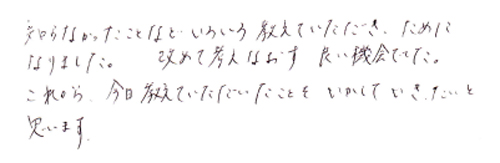 知らなかったことなど いろいろ教えていただき、ために
なりました。 改めて考えなおす 良い機会でした。
これから、今日教えていただいたことを いかして いきたいと
思います。